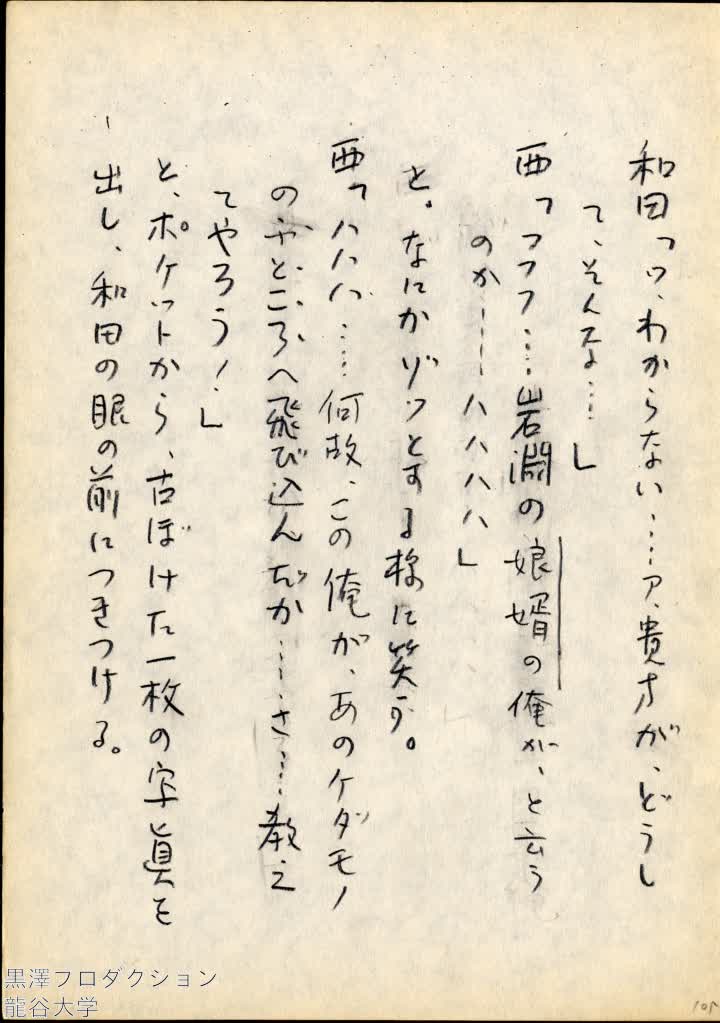 和田「ワ、わからない……ア、貴方が、どうし
て、そんな…」
西「フフフ……岩淵の娘婿の俺が、と云う
のか……ハハハハ」
と。なにかゾッとする様に笑う。
西「ハハハ……何故、この俺が、あのケダモノ
のふところへ飛び込んだか……さ…教え
てやろう！」
と、ポケットから、古ぼけた一枚の写眞を
出し、和田の眼の前につきつける。
105
黒澤プロダクション
龍谷大学